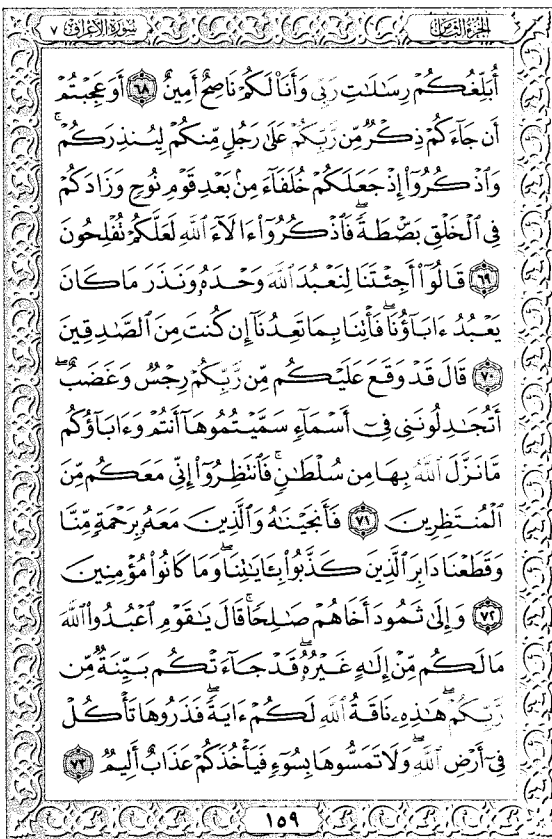 سورة الأعراف ٧
الجزء الثامن
أُبَلِّغُكُمْ رِسَٰلَٰتِ رَبِّي وَأَنَا۠ لَكُمْ نَاصِحٌ أَمِينٌ ٦٨ أَوَعَجِبْتُمْ
أَن جَآءَكُمْ ذِكْرٌ مِّن رَّبِّكُمْ عَلَىٰ رَجُلٍ مِّنكُمْ لِيُنذِرَكُمْ ۚ
وَٱذْكُرُوٓا۟ إِذْ جَعَلَكُمْ خُلَفَآءَ مِنۢ بَعْدِ قَوْمِ نُوحٍ وَزَادَكُمْ
فِى ٱلْخَلْقِ بَصْۜطَةً ۖ فَٱذْكُرُوٓا۟ ءَالَآءَ ٱللَّهِ لَعَلَّكُمْ تُفْلِحُونَ
٦٩ قَالُوٓا۟ أَجِئْتَنَا لِنَعْبُدَ ٱللَّهَ وَحْدَهُۥ وَنَذَرَ مَا كَانَ
يَعْبُدُ ءَابَآؤُنَا ۖ فَأْتِنَا بِمَا تَعِدُنَآ إِن كُنتَ مِنَ ٱلصَّٰدِقِينَ
٧٠ قَالَ قَدْ وَقَعَ عَلَيْكُم مِّن رَّبِّكُمْ رِجْسٌ وَغَضَبٌ ۖ
أَتُجَٰدِلُونَنِى فِىٓ أَسْمَآءٍ سَمَّيْتُمُوهَآ أَنتُمْ وَءَابَآؤُكُم
مَّا نَزَّلَ ٱللَّهُ بِهَا مِن سُلْطَٰنٍ ۚ فَٱنتَظِرُوٓا۟ إِنِّى مَعَكُم مِّنَ
ٱلْمُنتَظِرِينَ ٧١ فَأَنجَيْنَٰهُ وَٱلَّذِينَ مَعَهُۥ بِرَحْمَةٍ مِّنَّا
وَقَطَعْنَا دَابِرَ ٱلَّذِينَ كَذَّبُوا۟ بِـَٔايَٰتِنَا ۖ وَمَا كَانُوا۟ مُؤْمِنِينَ
٧٢ وَإِلَىٰ ثَمُودَ أَخَاهُمْ صَٰلِحًا ۗ قَالَ يَٰقَوْمِ ٱعْبُدُوا۟ ٱللَّهَ
مَا لَكُم مِّنْ إِلَٰهٍ غَيْرُهُۥ ۖ قَدْ جَآءَتْكُم بَيِّنَةٌ مِّن
رَّبِّكُمْ ۖ هَٰذِهِۦ نَاقَةُ ٱللَّهِ لَكُمْ ءَايَةً ۖ فَذَرُوهَا تَأْكُلْ
فِىٓ أَرْضِ ٱللَّهِ ۖ وَلَا تَمَسُّوهَا بِسُوٓءٍ فَيَأْخُذَكُمْ عَذَابٌ أَلِيمٌ ٧٣
١٥٩